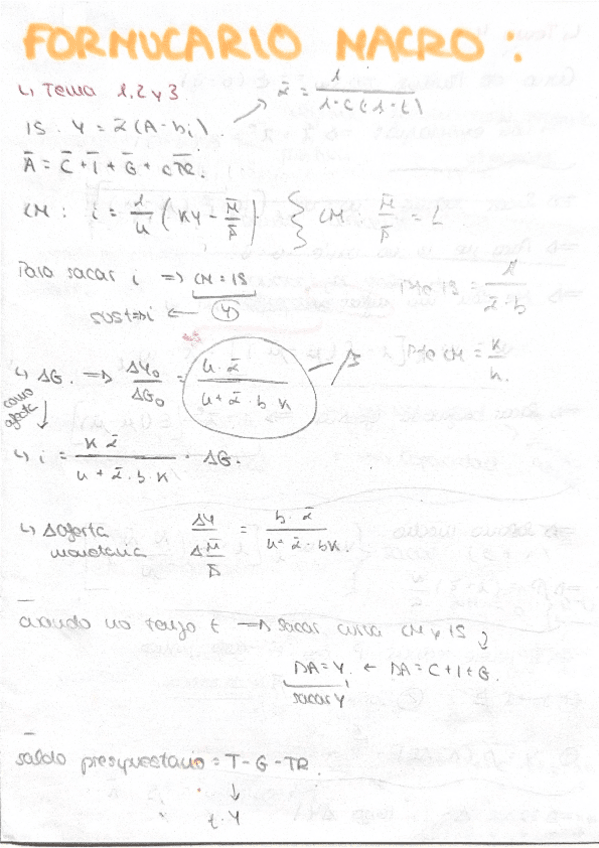 FORMUCARIO MACRO:
↳ Tema 1, 2 y 3
IS. Y = ᾱ(A - bi). → ᾱ = 1 / (1 - C(1 - t))
Ā = C̄ + Ī + Ḡ + cT̄R̄.
LM: i = 1/h (KY - M̄/P̄). } LM: M̄/P̄ = L
Para sacar i ⇒ LM = IS
Pte IS = 1 / (ᾱ · b)
sust ⇒ i ← Y
Pte LM = K/h.
↳ ΔG. ⇒ ΔY₀/ΔG₀ = h · ᾱ / (h + ᾱ · b K)
como afecta
↳ i = K ᾱ / (h + ᾱ · b · K) · ΔG.
↳ Δ oferta monetaria ΔY / Δ M̄/P̄ = b · ᾱ / (h + ᾱ · bK).
cuando no tengo t → sacar curva LM y IS
DA = Y. ← DA = C + I + G.
sacar Y
saldo presupuestario = T - G - TR.
↓
t · Y